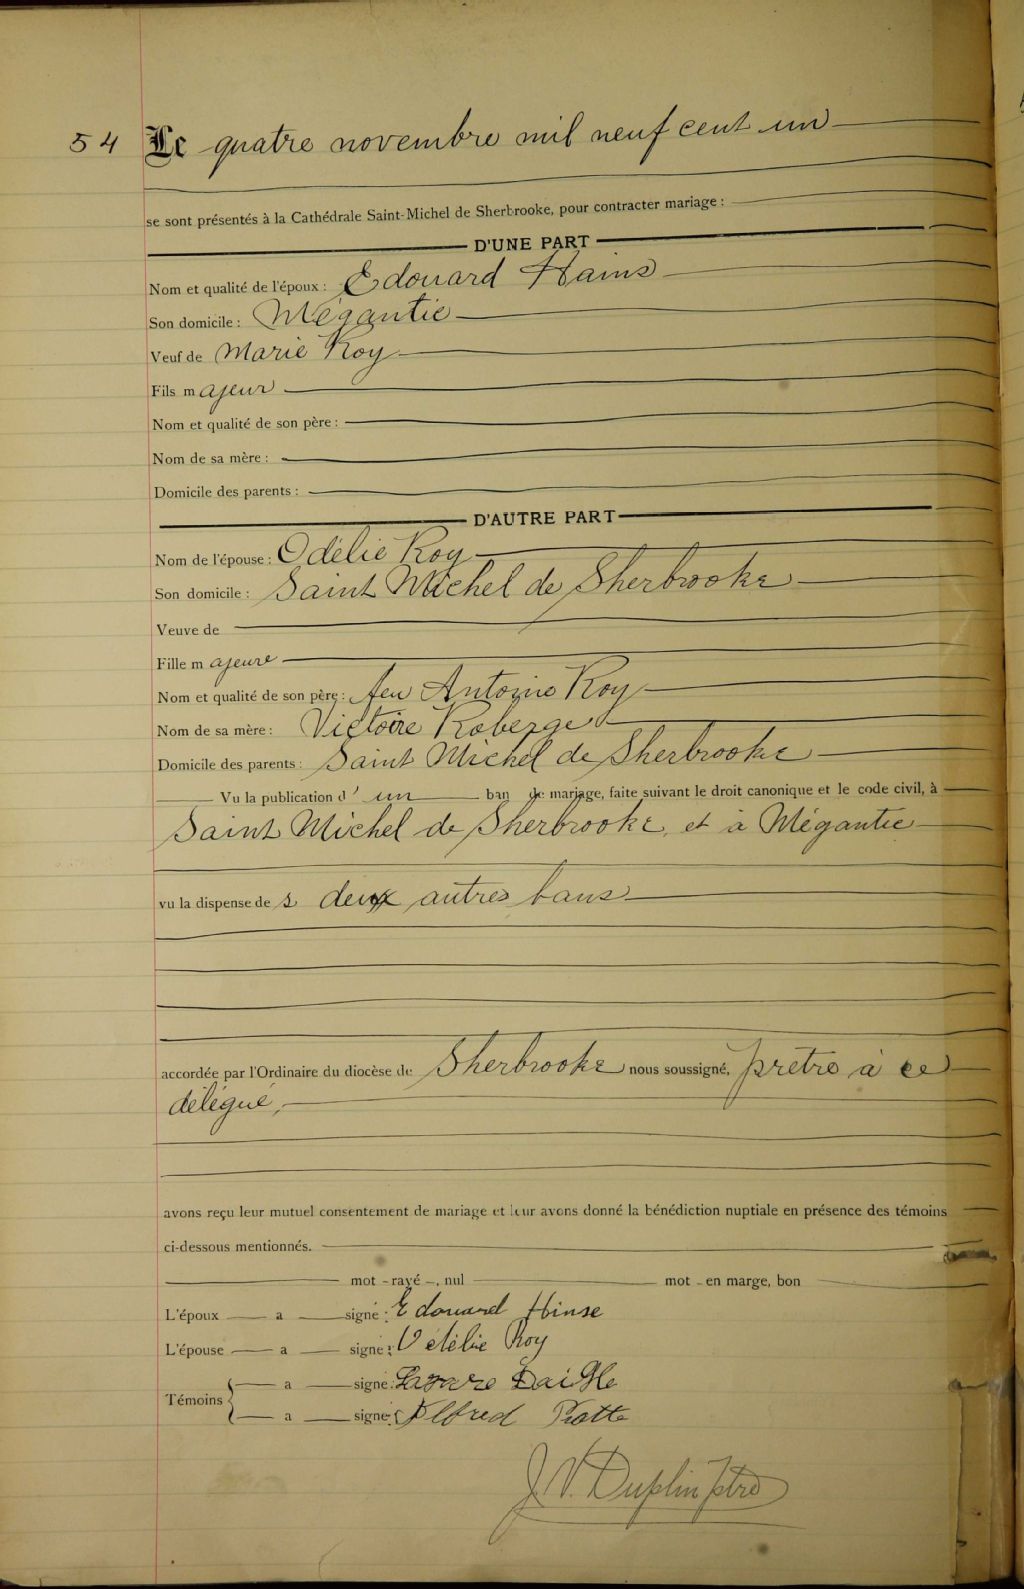 54 Le quatre novembre mil neuf cent un
se sont présentés à la Cathédrale Saint-Michel de Sherbrooke, pour contracter mariage :
D'UNE PART
Nom et qualité de l'époux : Edouard Hains
Son domicile : Mégantic
Veuf de Marie Roy
Fils majeur
Nom et qualité de son père :
Nom de sa mère :
Domicile des parents :
D'AUTRE PART
Nom de l'épouse : Odélie Roy
Son domicile : Saint Michel de Sherbrooke
Veuve de
Fille majeure
Nom et qualité de son père : feu Antoine Roy
Nom de sa mère : Victoire Roberge
Domicile des parents : Saint Michel de Sherbrooke
Vu la publication d' un ban de mariage, faite suivant le droit canonique et le code civil, à
Saint Michel de Sherbrooke, et à Mégantic
vu la dispense des deux autres bans
accordée par l'Ordinaire du diocèse de Sherbrooke nous soussigné, prêtre à ce
délégué,
avons reçu leur mutuel consentement de mariage et leur avons donné la bénédiction nuptiale en présence des témoins
ci-dessous mentionnés.
mot - rayé -, nul mot - en marge, bon
L'époux a signé : Edouard Hinse
L'épouse a signé : Odélie Roy
Témoins a signé : Lazare Daigle
a signé : Alfred Piotte
J. V. Duplin ptre